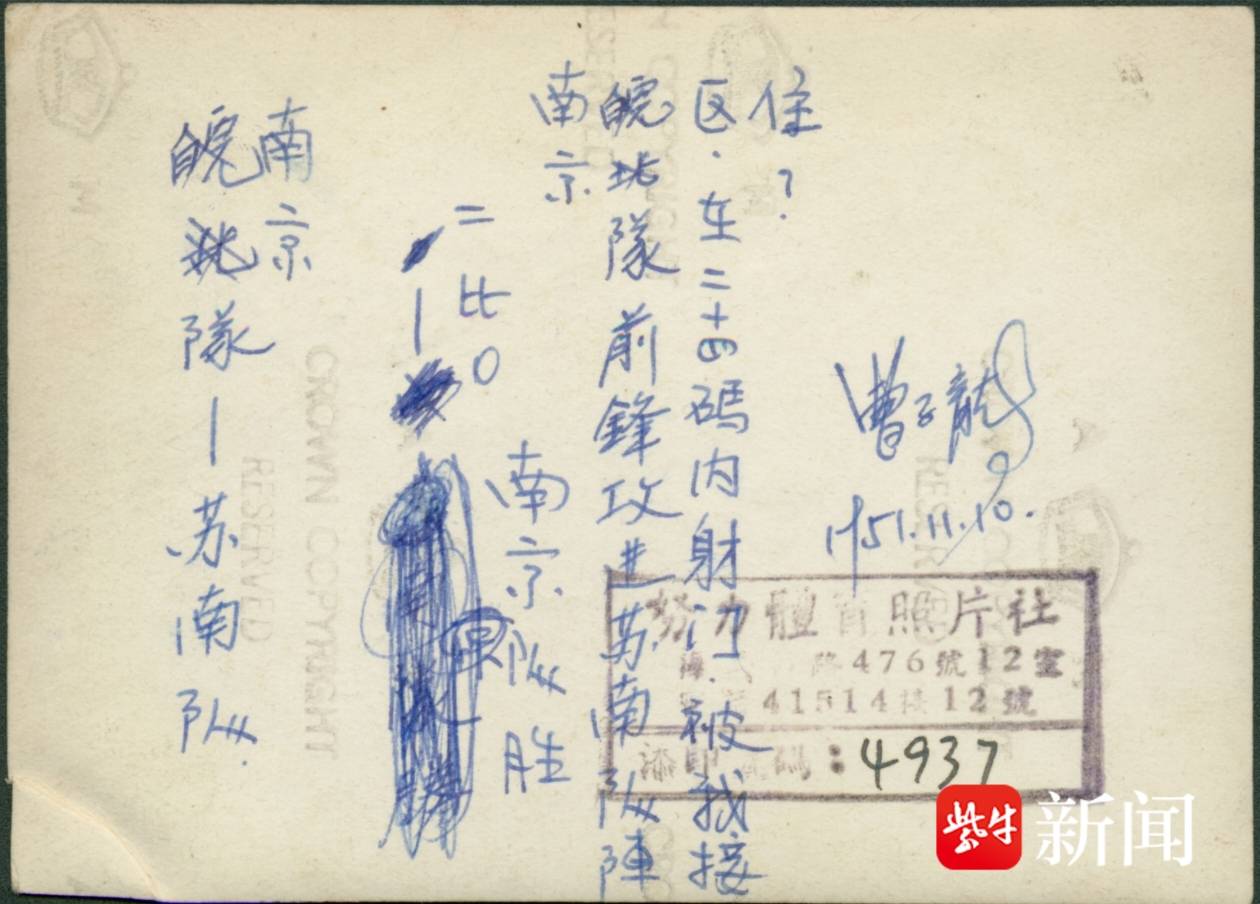 皖北隊—苏南队.
南京
二比0
南京队胜
南京
皖北隊前鋒攻进苏南队陣
区.在二十四碼内射门.被我接
住?
曹子龍
1951.11.10.
努力體育照片社
路476號12室
41514 12號
添印 碼:4937
CROWN COPYRIGHT
RESERVED
紫牛新闻